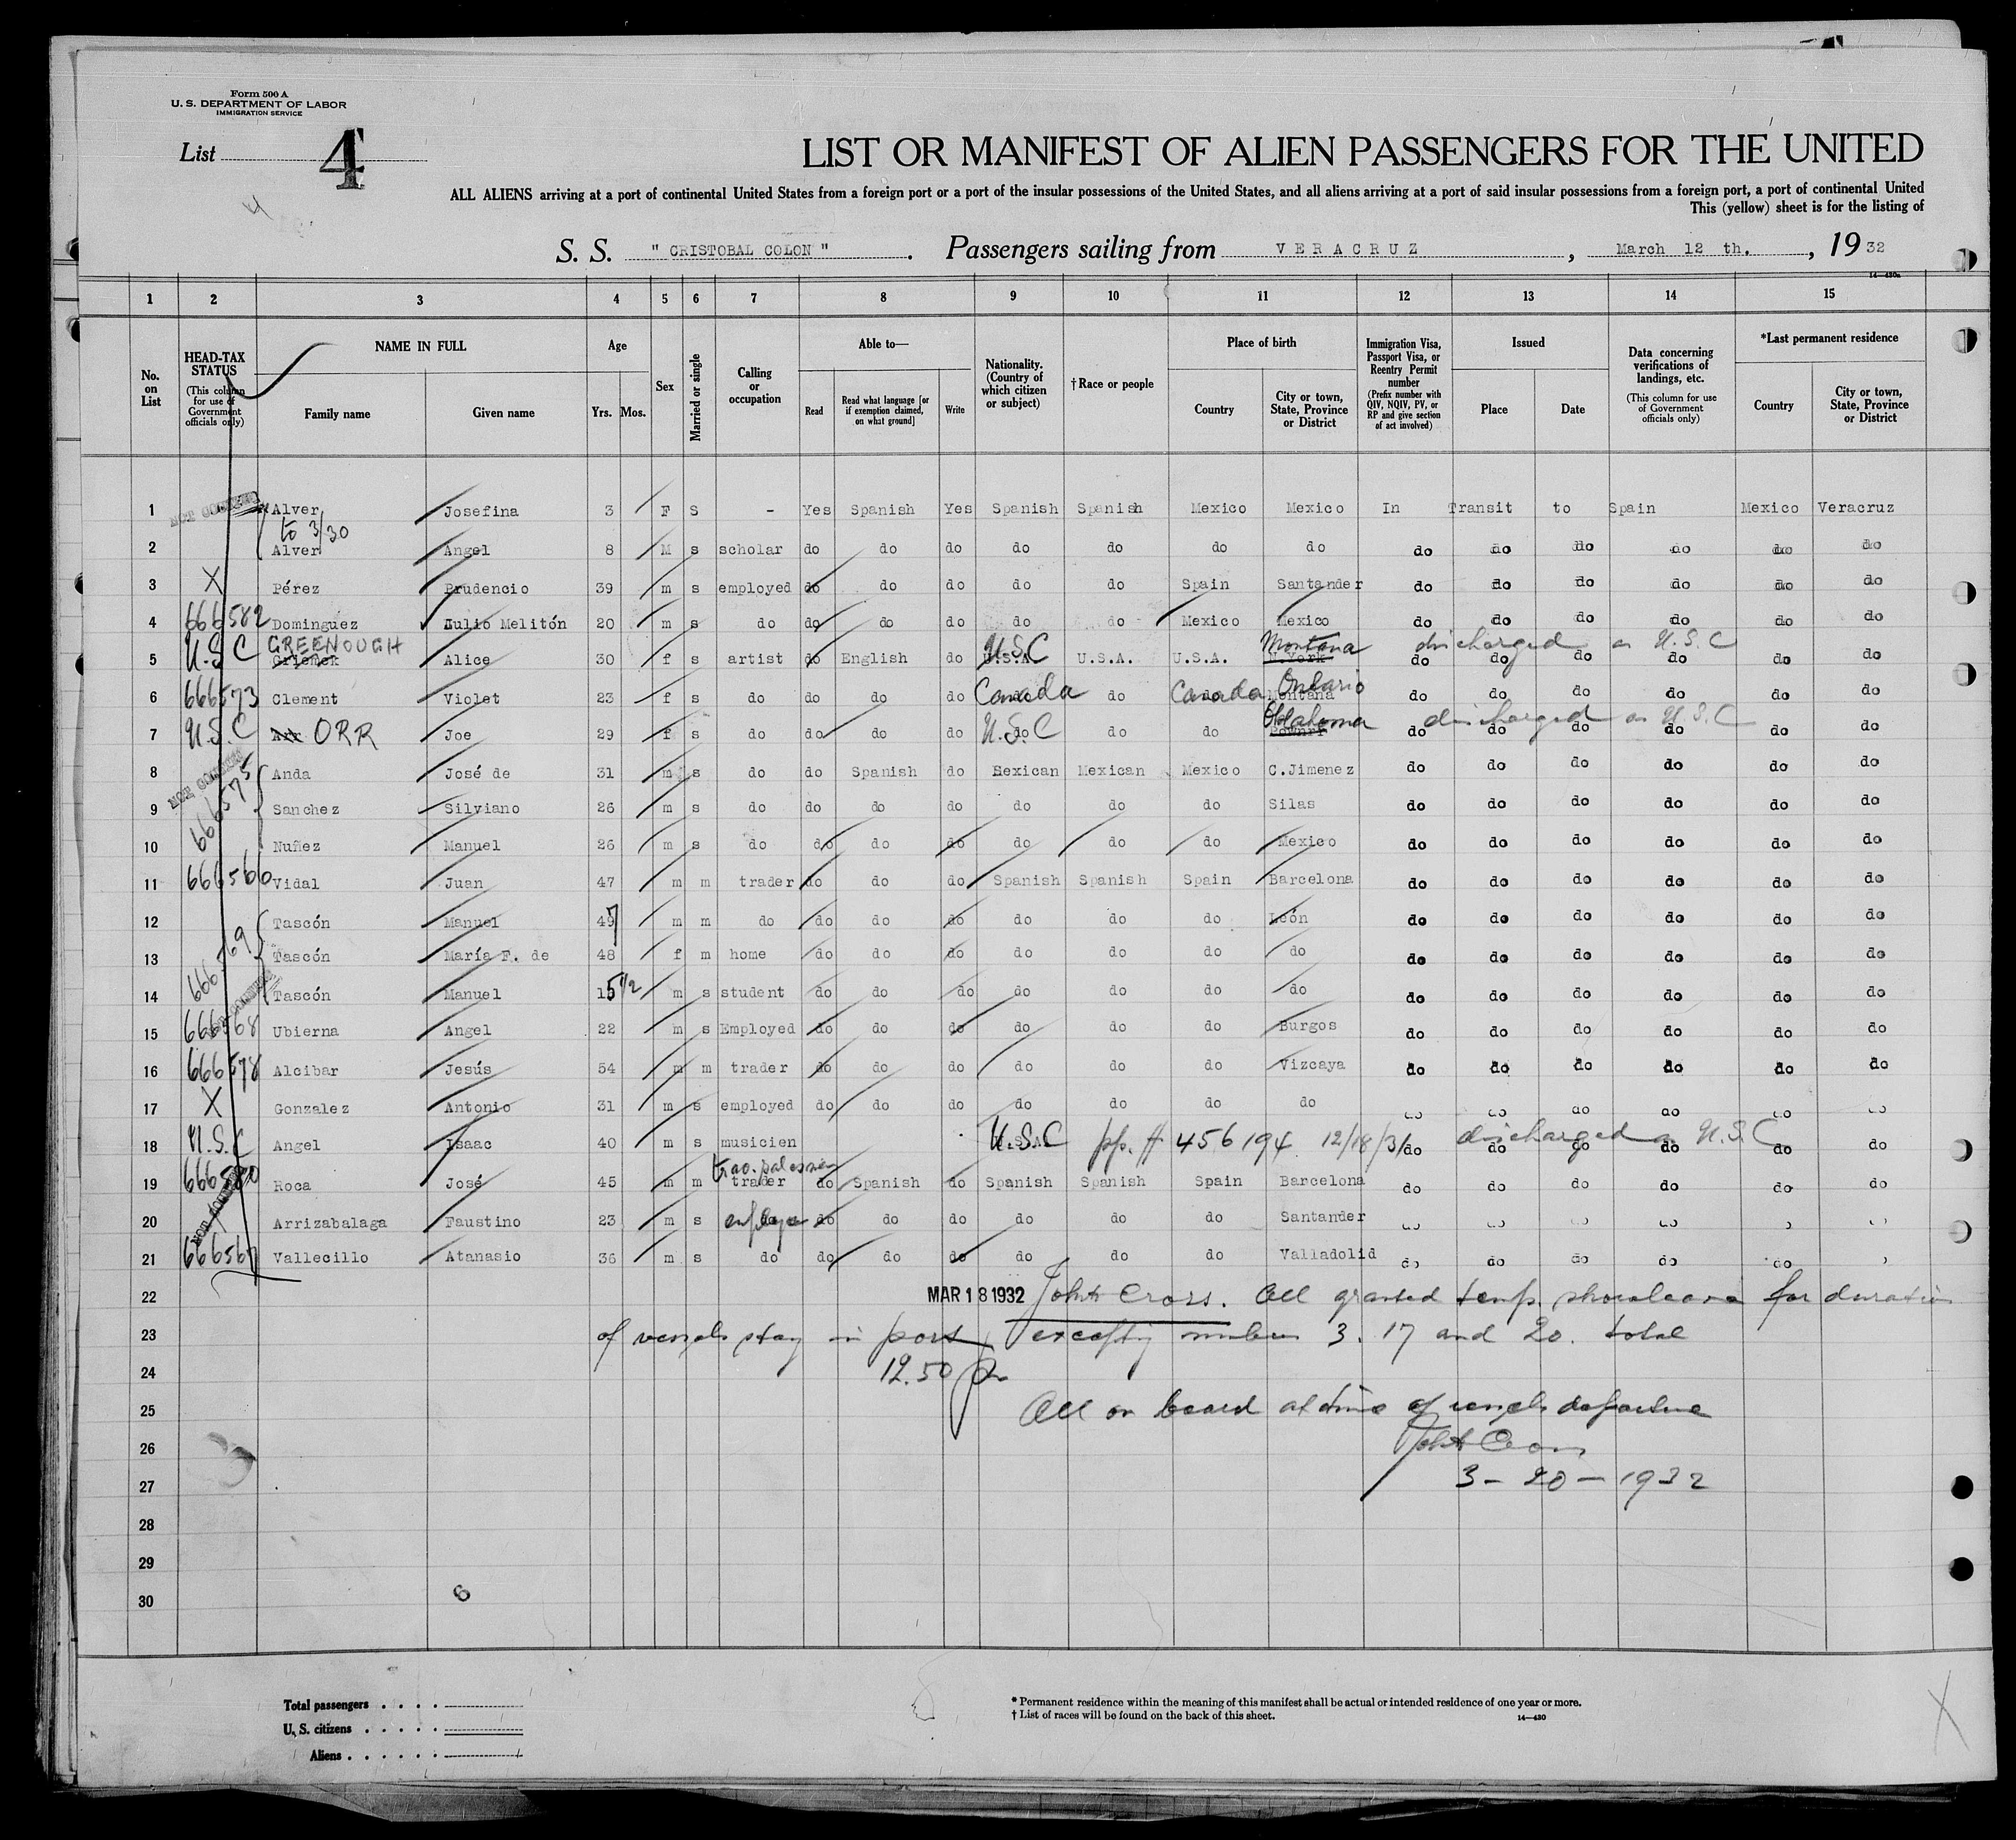 Form 500 A
U. S. DEPARTMENT OF LABOR
IMMIGRATION SERVICE
List 4
LIST OR MANIFEST OF ALIEN PASSENGERS FOR THE UNITED
ALL ALIENS arriving at a port of continental United States from a foreign port or a port of the insular possessions of the United States, and all aliens arriving at a port of said insular possessions from a foreign port, a port of continental United
This (yellow) sheet is for the listing of
S. S. " CRISTOBAL COLON " . Passengers sailing from VERACRUZ , March 12 th. , 19 32
14—430a
1 2 3 4 5 6 7 8 9 10 11 12 13 14 15
No. on List
HEAD-TAX STATUS (This column for use of Government officials only)
NAME IN FULL
Family name Given name
Age
Yrs. Mos.
Sex
Married or single
Calling or occupation
Able to—
Read
Read what language [or if exemption claimed, on what ground]
Write
Nationality. (Country of which citizen or subject)
† Race or people
Place of birth
Country
City or town, State, Province or District
Immigration Visa, Passport Visa, or Reentry Permit number (Prefix number with QIV, NQIV, PV, or RP and give section of act involved)
Issued
Place Date
Data concerning verifications of landings, etc. (This column for use of Government officials only)
*Last permanent residence
Country
City or town, State, Province or District
1 NOT COUNTED Alver Josefina 3 F S - Yes Spanish Yes Spanish Spanish Mexico Mexico In Transit to Spain Mexico Veracruz
to 3/30
2 Alver Angel 8 M s scholar do do do do do do do do do do do do do
3 X Pérez Prudencio 39 m s employed do do do do do Spain Santander do do do do do do
4 666582 Dominguez Julio Melitón 20 m s do do do do do do Mexico Mexico do do do do do do
5 U.S.C GREENOUGH Alice 30 f s artist do English do U.S.A. U.S.C U.S.A. U.S.A. N.York Montana do do do do do do discharged as U.S.C
6 666573 Clement Violet 23 f s do do do do Canada do Canada Montana Ontario do do do do do do
7 U.S.C Arr ORR Joe 29 f s do do do do do U.S.C do do Oklahoma do do do do do do discharged as U.S.C
8 NOT COUNTED Anda José de 31 m s do do Spanish do Mexican Mexican Mexico C.Jimenez do do do do do do
9 666575 Sanchez Silviano 26 m s do do do do do do do Silas do do do do do do
10 Nuñez Manuel 26 m s do do do do do do do Mexico do do do do do do
11 666566 Vidal Juan 47 m m trader do do do Spanish Spanish Spain Barcelona do do do do do do
12 Tascón Manuel 49 7 m m do do do do do do do León do do do do do do
13 666569 Tascón María F. de 48 f m home do do do do do do do do do do do do do
14 Tascón Manuel 15 1/2 m s student do do do do do do do do do do do do do
15 666568 Ubierna Angel 22 m s Employed do do do do do do Burgos do do do do do do
16 666578 Alcibar Jesús 54 m m trader do do do do do do Vizcaya do do do do do do
17 X Gonzalez Antonio 31 m s employed do do do do do do do do do do do do do
18 U.S.C Angel Isaac 40 m s musicien U.S.A. U.S.C pp. # 456194 12/18/31 do do do do do do discharged as U.S.C
19 666580 Roca José 45 m m trav. salesman trader do Spanish do Spanish Spanish Spain Barcelona do do do do do do
20 NOT COUNTED Arrizabalaga Faustino 23 m s do employe do do do do do do Santander
21 666567 Vallecillo Atanasio 36 m s do do do do do do do Valladolid do do do do do
22 MAR 18 1932 John Cross. All granted temp. shoreleave for duration
23 of vessels stay in port excepting numbers 3. 17 and 20. total
24 12.50
25 All on board at time of vessels departure
26 John Cross
27 3 - 20 - 1932
28
29
30
6
Total passengers
U. S. citizens
Aliens
* Permanent residence within the meaning of this manifest shall be actual or intended residence of one year or more.
† List of races will be found on the back of this sheet.
14—430